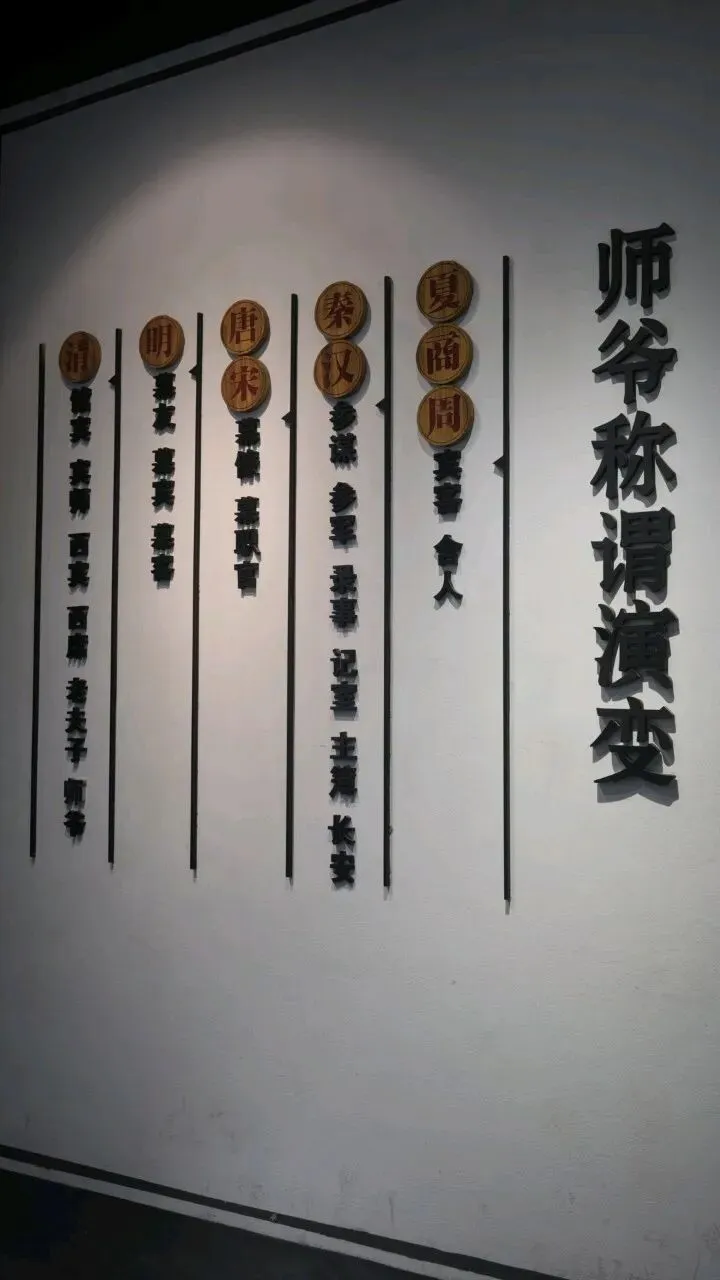 师爷称谓演变
夏商周 宾客 舍人
秦汉 参谋 参军 录事 记室 主簿 长安
唐宋 幕僚 幕职官
明 幕友 幕宾 幕客
清 馆宾 宾师 西宾 西席 老夫子 师爷